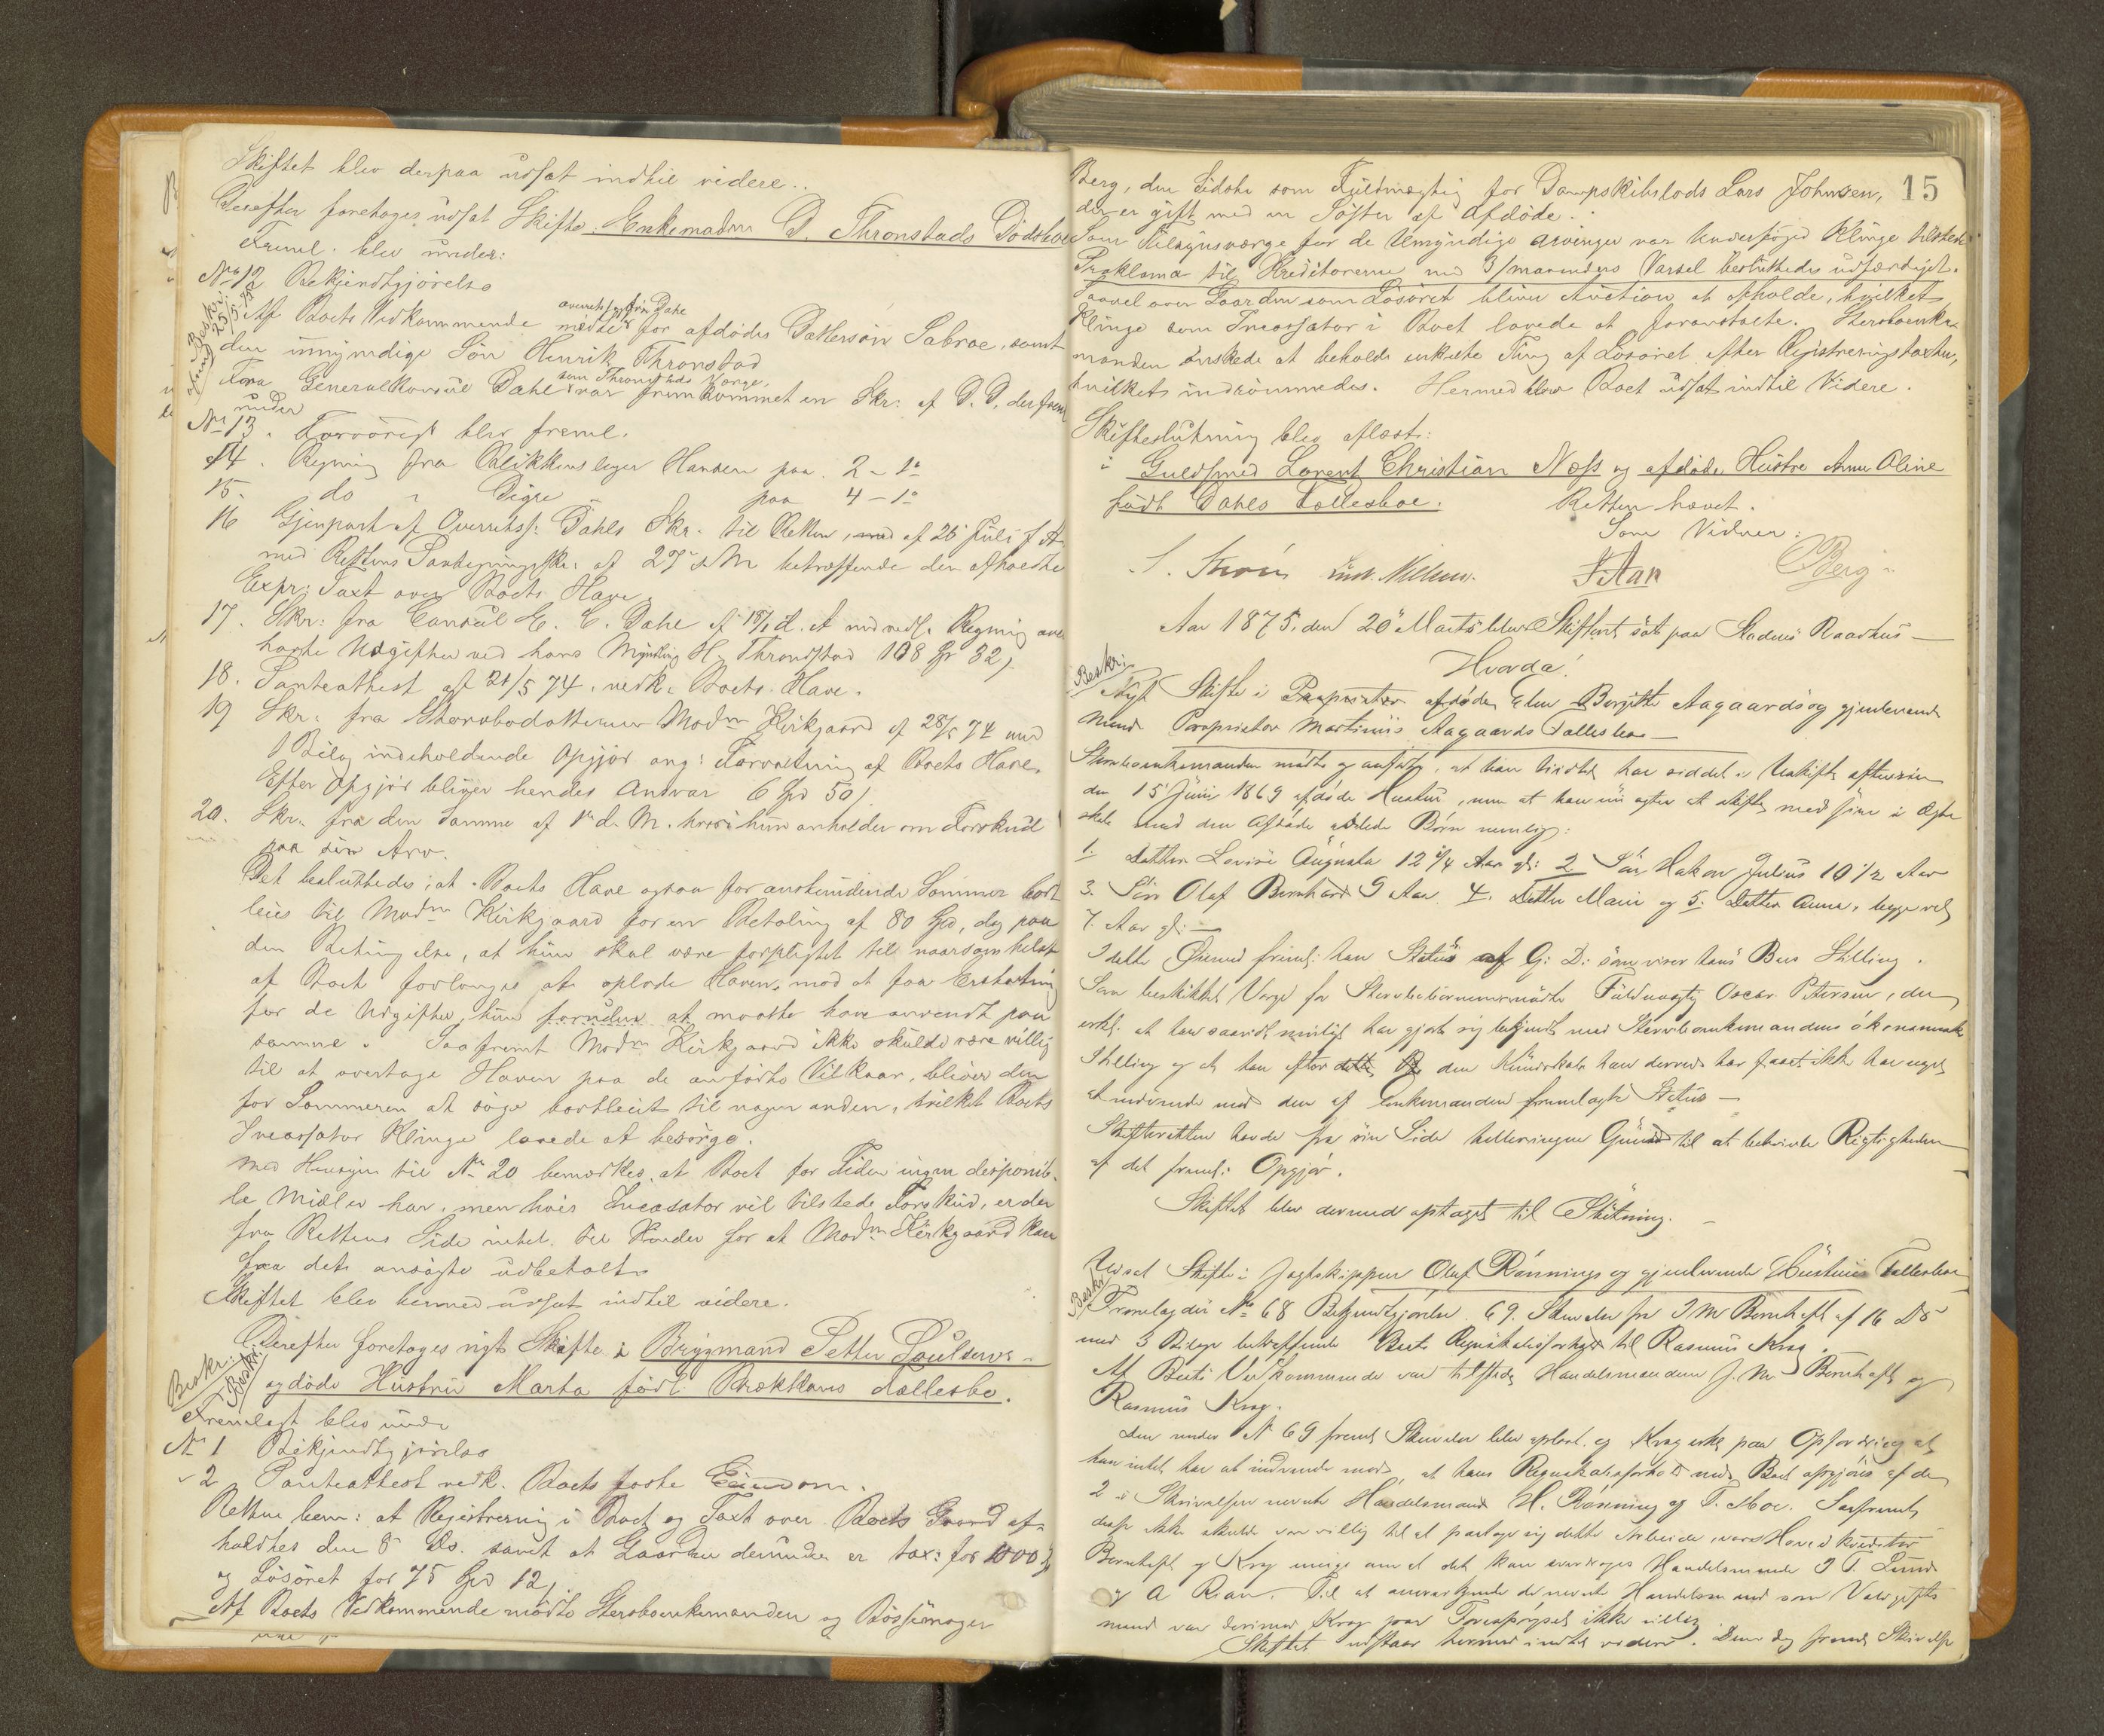 Skiftet blev derpaa udsat indtil videre..
Derefter foretages udsat Skifte: Enkemadm D. Thronstads Dödsboe
Freml. blev under:
No 12 Bekjendtgjörelse
Beskr. 25/5 75
Af Boets Vedkommende mödte overretssagförer Dahl for afdödes Dattersön Sabroe, samt
den umyndige Sön Henrik Thronstad
Fra Generalkonsul Dahl som Thronstads Værge, var fremkommet en Skr: af D. D, der freml
under
No 13. Forövrigt blev freml.
14. Regning fra Blikkenslager Hansen paa 2 - 1o
15. do " Digre paa 4 - 1o
16 Gjenpart af Overretssf: Dahls Skr. til Retten, af 26 Juli f A.
med Rettens Paategningsskr: af 27 s M betræffende den afholdte
Expr: Taxt over Boets Have.
17. Skr: fra Consul E. C. Dahl af 18/1 d. A med vedl. Regning over
havte Udgifter ved hans Mynkling H. Thronstad 108 Spd 32 /
18. Panteattest af 21/5 74. vedk: Boets Have.
19 Skr: fra Stervbodatteren Madm Kirkgaard af 28/5 74 med
1 Bilag indeholdende Opgjör ang: Forvaltning af Boets Have.
Efter Opgjör bliver hendes Ansvar 6 Spd 50 /
20. Skr. fra den samme af 1ste d. M. hvori hun anholder om Forskud
paa sin Arv.
Det besluttedes; at Boets Have ogsaa for anstundende Sommer bort
leies til Madm Kirkgaard for en Betaling af 80 Spd, dog paa
den Betingelse, at hun skal være forpligtet til naarsomhelst
af Boet forlanges at oplade Haven, mod at faa Erstatning
for de Udgifter, hun forinden at maatte have anvendt paa
samme. Saafremt Madm Kirkgaard ikke skulde være villig
til at overtage Haven paa de anförte Vilkaar, bliver den
for Sommeren at söge bortleiet til nogen anden, hvilket Boets
Incassator Klinge lovede at besörge.
Med Hensyn til No 20 bemærkes, at Boet for Tiden ingen disponib-
le Midler har, men hvis Incassator vil tilstede Forskud, er der
fra Rettens Side intet til Hinder for at Madm Kirkgaard kan
faa det ansögte udbetalt.
Skiftet blev hermed udsat indtil videre.
Beskr: Beskr:
Derefter foretoges nyt Skifte i Brygmand Petter Poulsens
og döde Hustru Marta födt Brækkans Fællesbo.
Fremlagt blev under
No 1 Bekjendtgjörelse
" 2 Panteattest vedk. Boets faste Eiendom.
Retten bem: at Registrering i Boet og Taxt over Boets Gaard af-
holdtes den 8de ds. samt at Gaarden derunder er tax: for 1000 Spd
og Lösöret for 75 Spd 12 /
Af Boets Vedkommende mödte Stervboenkemanden og Bössemager
15
Berg, den Sidste som Fuldmægtig for Dampskibslods Lars Johnsen,
der er gift med en Söster af Afdöde.
Som Tilsynsværge for de Umyndige Arvinger var Underfoged Klinge tilstede
Proklama til Kreditorerne med 3 / maaneders Varsel besluttedes udfærdiget.
Saavel over Gaarden som Lösöret bliver Auction at afholde, hvilket
Klinge som Incassator i Boet lovede at foranstalte. Stervboenke-
manden önskede at beholde enkelte Ting af Lösöret efter Registreringstaxten,
hvilket indrömmedes. Hermed blev Boet udsat indtil Videre.
Skifteslutning blev aflæst:
i Guldsmed Lorent Christian Næss og afdöde Hustru Anne Oline
födt Dahls Fællesboe. Retten hævet.
Som Vidner:
Berg
Aar 1875. den 20de Marts blev Skifteret sat paa Stadens Raadhus
Hvorda!
Beskr:
Nyt Skifte i afdöde Elen Bergitte Aagaards og gjenlevende
Mand Proprietær Martinus Aagaards Fællesbo
Stervboenkemanden mödte og anförte, at han hidtil har siddet i Uskifte efter sin
den 15 Juni 1869 afdöde Hustru, men at han nu agter at skifte med sine i Ægte
skab med den Afdöde avlede Börn nemlig:
1. Datter Lovise Augusta 12 1/4 Aar gl: 2 Sön Hakon Julius 10 1/2 Aar
3. Sön Olaf Bernhard 9 Aar 4. Datter Marie og 5. Datter Anna, begge vel
7 Aar gl:
I dette Öiemed freml: han Status af G: D: som viser hans Boes Stilling.
Som beskikket Værge for Stervbobörnene mödte Fuldmægtig Oscar Petersen, der
erkl. at han saavidt muligt har gjort sig bekjendt med Stervboenkemandens ökonomiske
Stilling og at han efter den Kundskab han derved har faaet ikke har noget
at indvende mod den af Enkemanden fremlagte Status
Skifteretten havde fra sin Side heller ingen Grund til at betvivle Rigtigheden
af det freml: Opgjör.
Skiftet blev dermed optaget til Slutning.
Beskr
Udsat Skifte i Jagtskipper Oluf Rönnings og gjenlevende Hustrues Fællesboe
Fremlagdes No 68 Bekjendtgjörelse 69. Skrivelse fra J M Bernhoft af 16 Ds
med 3 Bilage betræffende Boets Regnskabsforhold til Rasmus Krog.
Af Boets Vedkommende var tilstede Handelsmændene J. M. Bernhoft og
Rasmus Krog.
Den under No 69 freml Skrivelse blev oplæst og Krog erkl paa Opfordring at
han intet har at indvende mod, at hans Regnskabsforhold med Boet opgjöres af de
2 i Skrivelsen nævnte Handelsmænd H. Rönning og T. Moe. Saafremt
disse ikke skulde være villig til at paatage sig dette Arbeide, vare Hovedkreditor
Bernhoft og Krog enige om at det kan overdrages Handelsmændene J T. Lund
og A Rian. Til at anerkjende de nævnte Handelsmænd som Voldgifts
mænd var derimod Krog paa Forespörgsel ikke villig
Skiftet udstaar hermed indtil videre. Den dog freml Skrivelse